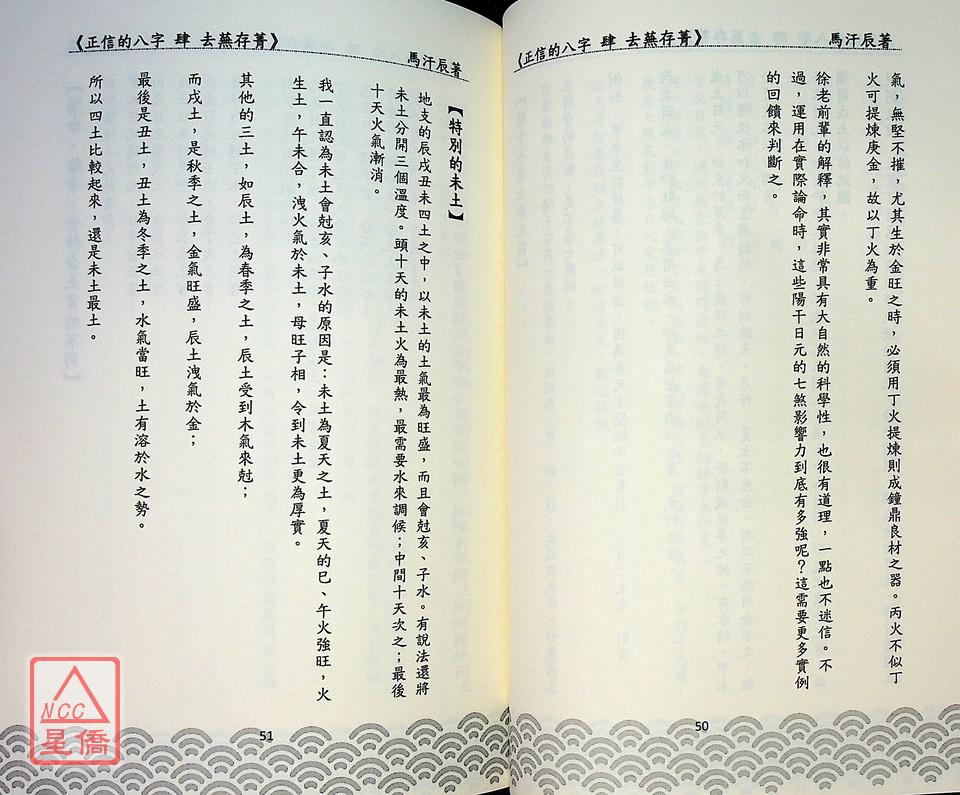 《正信的八字 肆 去蕪存菁》
馬汗辰著
氣，無堅不摧，尤其生於金旺之時，必須用丁火提煉則成鐘鼎良材之器。丙火不似丁
火可提煉庚金，故以丁火為重。
徐老前輩的解釋，其實非常具有大自然的科學性，也很有道理，一點也不迷信。不
過，運用在實際論命時，這些陽干日元的七煞影響力到底有多強呢？這需要更多實例
的回饋來判斷之。
50
《正信的八字 肆 去蕪存菁》
馬汗辰著
【特別的未土】
地支的辰戌丑未四土之中，以未土的土氣最為旺盛，而且會尅亥、子水。有說法還將
未土分開三個溫度。頭十天的未土火為最熱，最需要水來調候；中間十天次之；最後
十天火氣漸消。
我一直認為未土會尅亥、子水的原因是：未土為夏天之土，夏天的巳、午火強旺，火
生土，午未合，洩火氣於未土，母旺子相，令到未土更為厚實。
其他的三土，如辰土，為春季之土，辰土受到木氣來尅；
而戌土，是秋季之土，金氣旺盛，辰土洩氣於金；
最後是丑土，丑土為冬季之土，水氣當旺，土有溶於水之勢。
所以四土比較起來，還是未土最土。
51
NCC
星僑